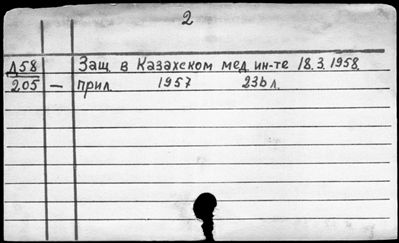 2
Д58 Защ. в Казахском мед. ин-те 18.3.1958.
205 — прил. 1957 236 л.